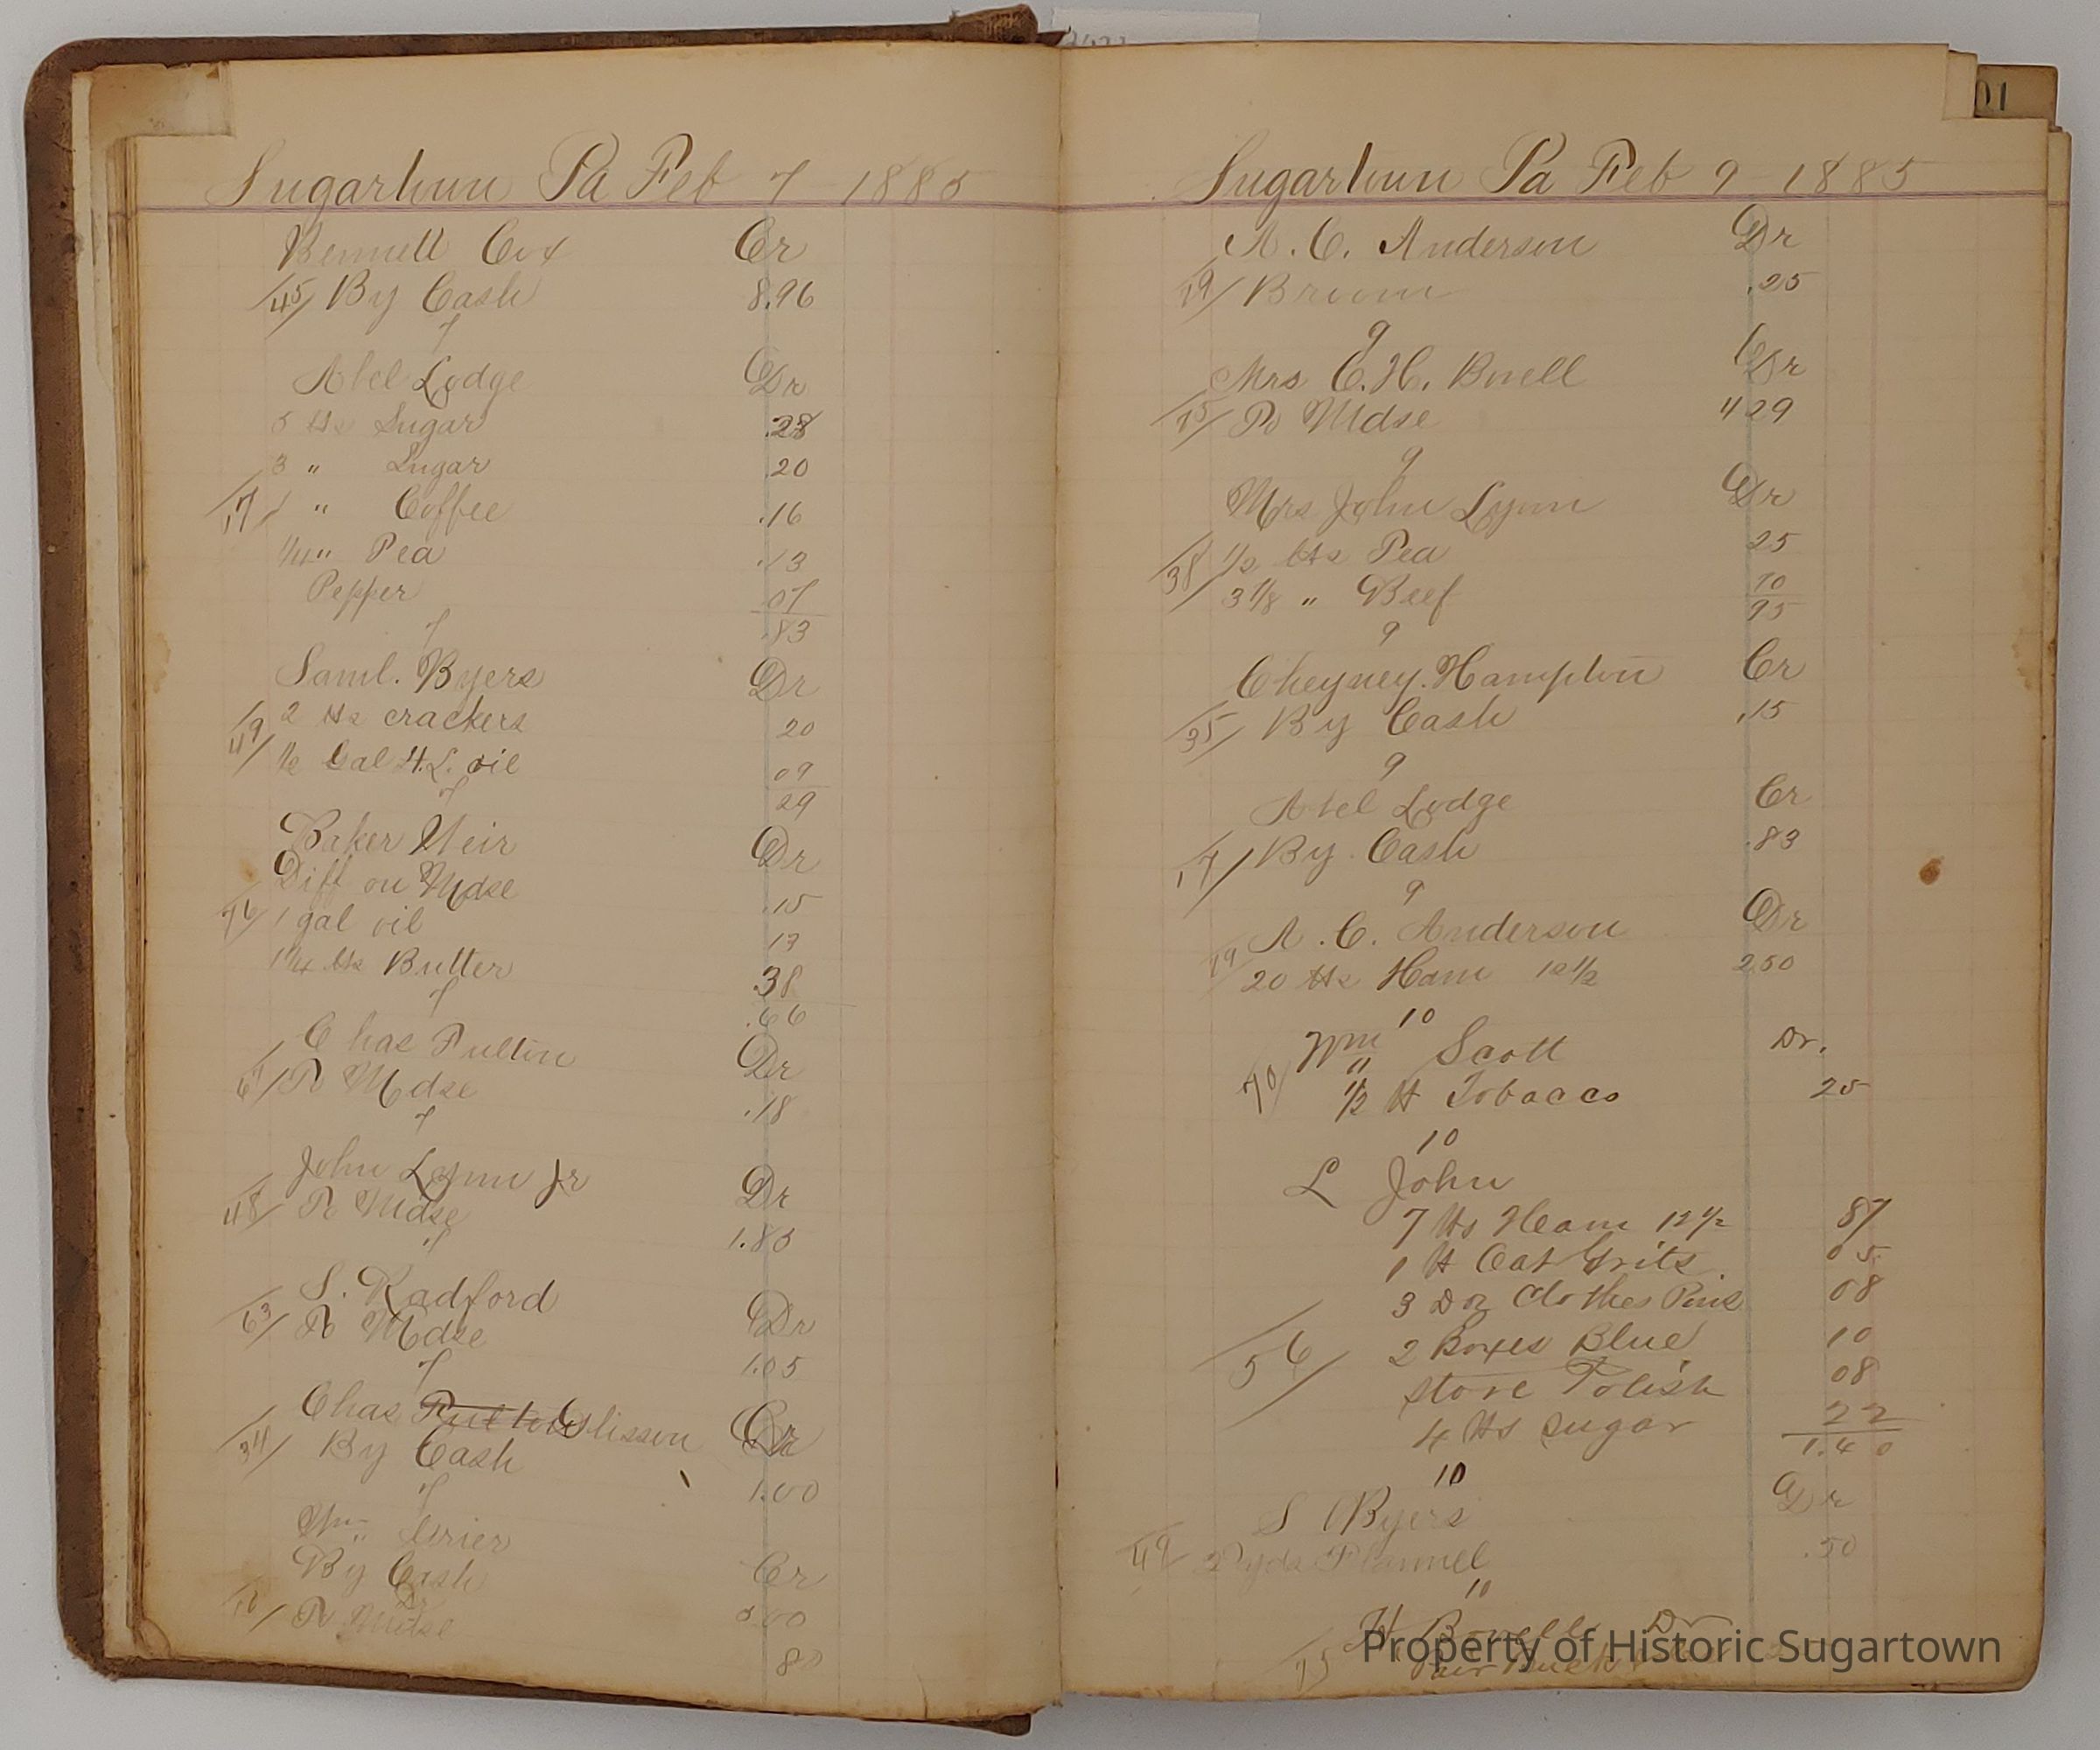 Sugartown Pa Feb 7 1885
Bennett Cox Cr
45/ By Cash 8.96
7
Abel Lodge Dr
5 lbs Sugar .28
3 " Sugar .20
17/ 1 " Coffee .16
1/4 " Pea .13
Pepper 07
.83
7
Saml. Byers Dr
49/ 2 lbs crackers 20
1/2 Gal H.L. oil 09
29
7
Baker Weir Dr
Diff on Mdse .15
76/ 1 gal oil 13
1 1/4 lbs Butter .38
.66
7
Chas Fulton Dr
67/ To Mdse .18
7
John Lynn Jr Dr
48/ To Mdse 1.83
7
S. Radford Dr
63/ To Mdse 1.05
7
Chas Fulton Glisson Cr
34/ By Cash 1.00
7
Wm Grier
By Cash Cr
To Mdse .00
80
Sugartown Pa Feb 9 1885
A. C. Anderson Dr
19/ Broom .25
9
Mrs E. H. Buell Dr
15/ To Mdse 4 29
9
Mrs John Lynn Dr
38/ 1/2 lbs Pea 25
3 1/8 " Beef 70
95
9
Cheyney Hampton Cr
35/ By Cash .15
9
Abel Lodge Cr
17/ By Cash .83
9
A. C. Anderson Dr
19/ 20 lbs Ham 12 1/2 2.50
10
Wm Scott Dr.
70/ 1/2 lb Tobacco 25
10
L John
7 lbs Ham 12 1/2 87
1 lb Oat Grits 05
3 Doz Clothes Pins 08
56/ 2 Boxes Blue 10
Stove Polish 08
4 lbs Sugar 22
1.40
10
S Byers Dr
49/ 2 yds Flannel .50
10
H Bonelle Dr
15/ Pair Buck
Property of Historic Sugartown
01